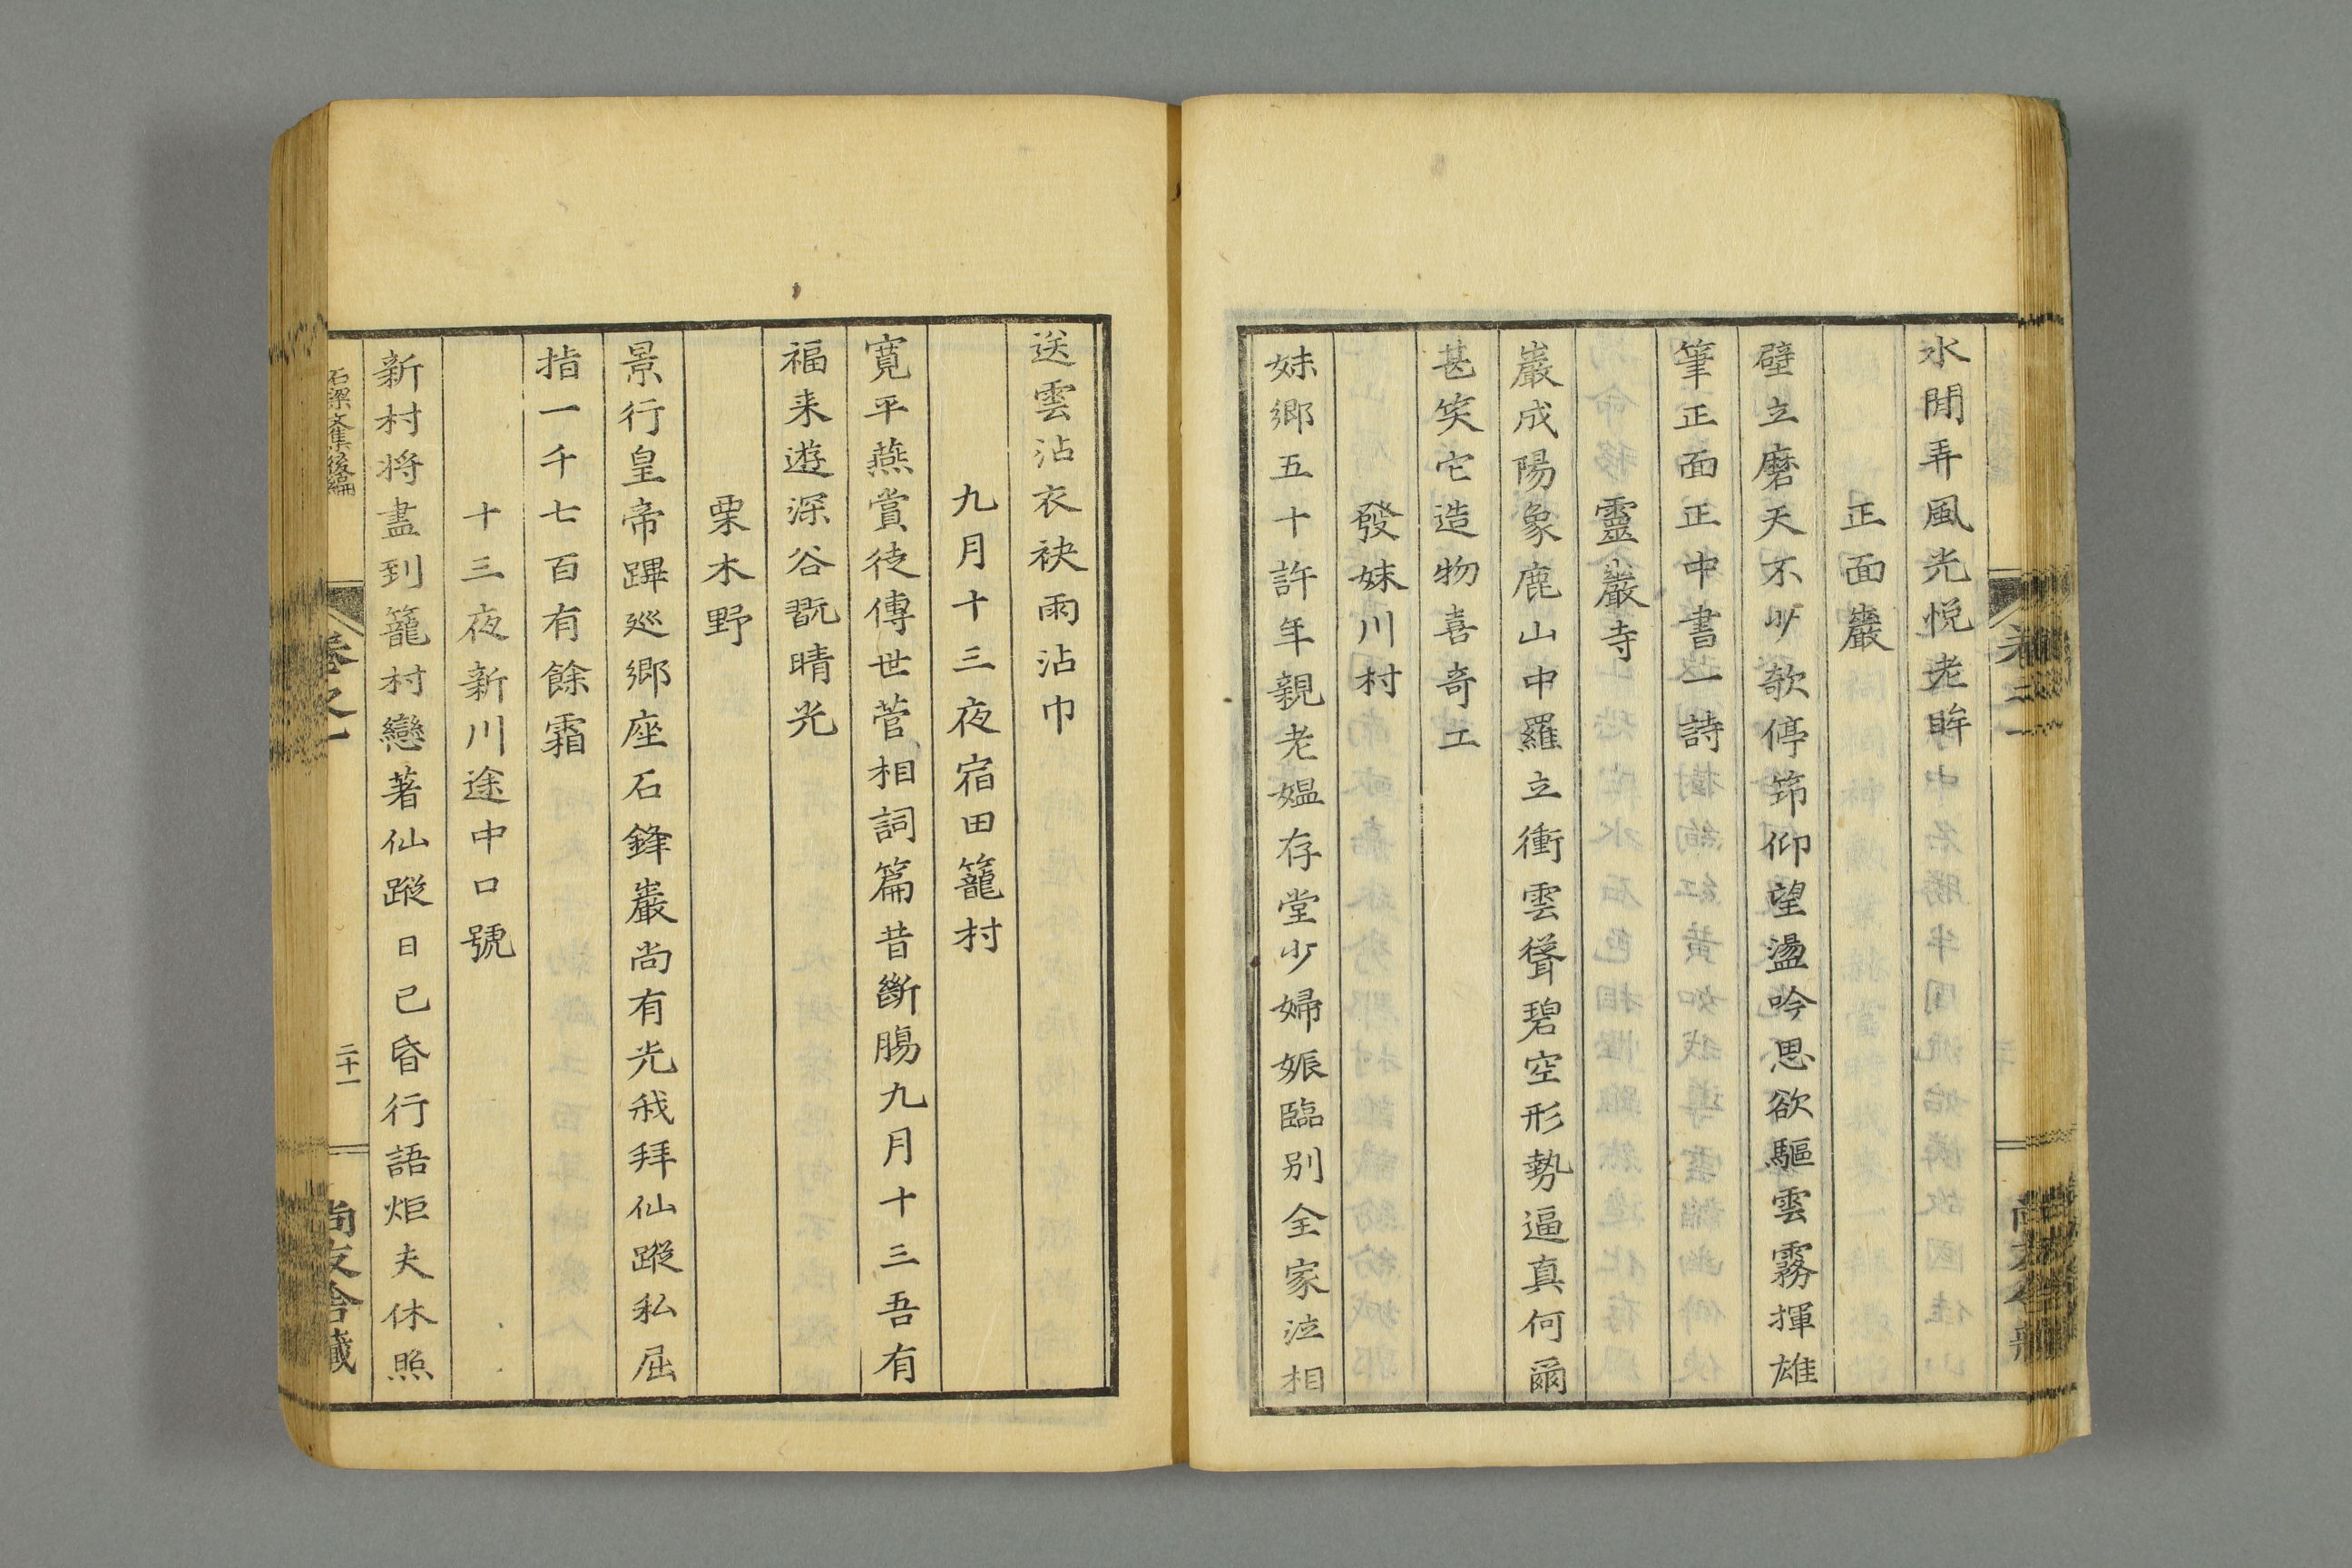 水閒弄風光悦老眸
正面巖
壁立磨天不少欹停筇仰望盪吟思欲驅雲霧揮雄
筆正面正中書一詩
靈巖寺
巖成陽象鹿山中羅立衝雲聳碧空形勢逼真何爾
甚笑它造物喜奇工
發妹川村
妹鄉五十許年親老媼存堂少婦娠臨别全家泣相
送雲沾衣袂雨沾巾
九月十三夜宿田籠村
寛平燕賞徒傳世菅相詞篇昔斷膓九月十三吾有
福来遊深谷翫晴光
栗木野
景行皇帝蹕巡鄉座石鋒巖尚有光我拜仙蹤私屈
指一千七百有餘霜
十三夜新川途中口號
新村将盡到籠村戀著仙蹤日已昏行語炬夫休照
石梁文集後編
卷之一
二十一
尚友舍藏